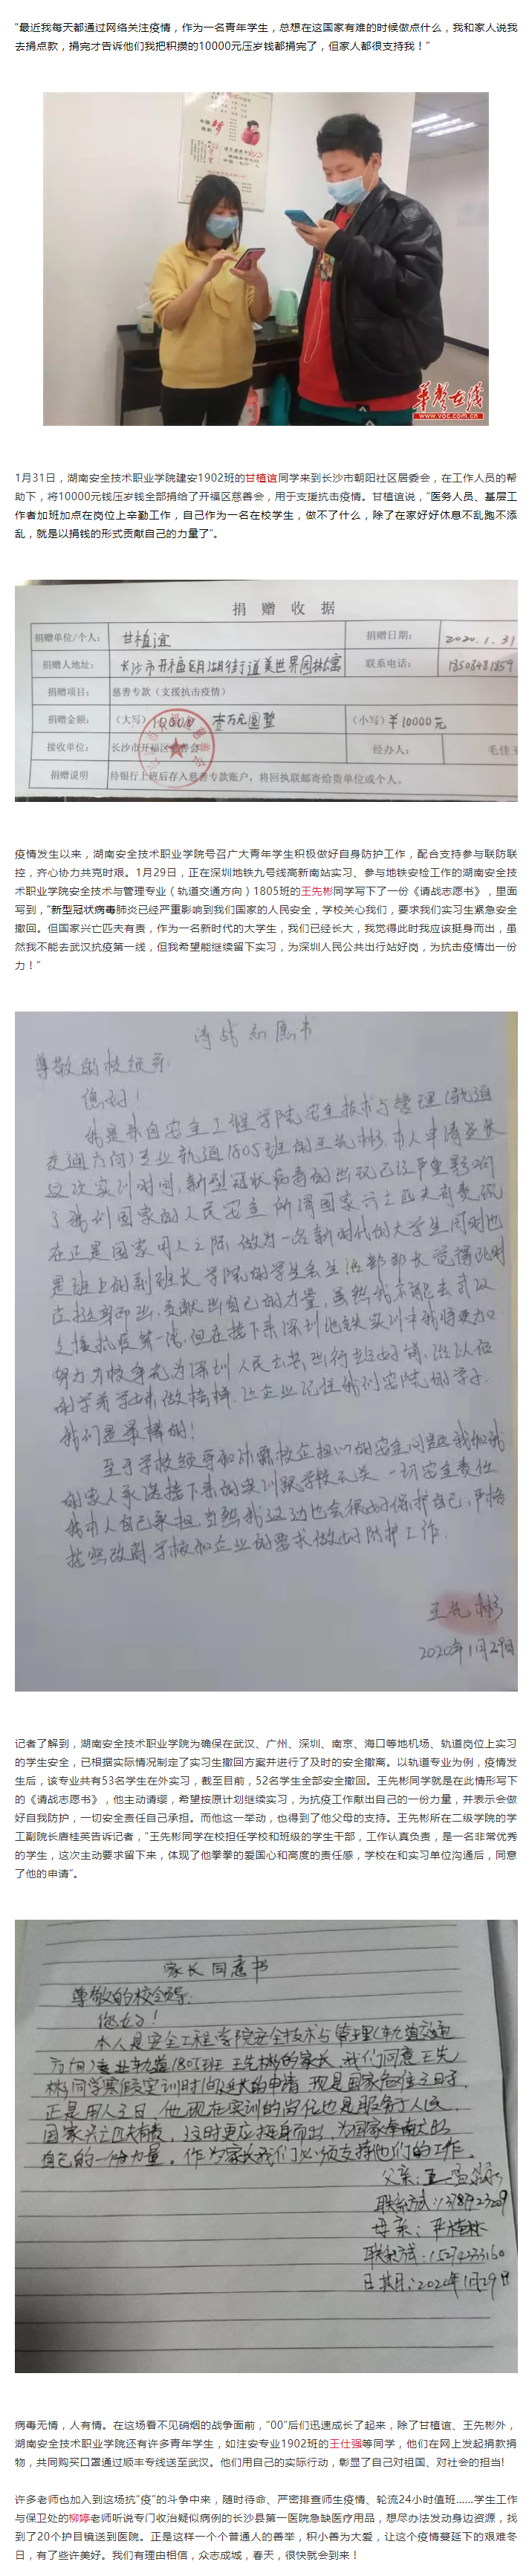 “最近我每天都通过网络关注疫情，作为一名青年学生，总想在这国家有难的时候做点什么，我和家人说我
去捐点款，捐完才告诉他们我把积攒的10000元压岁钱都捐完了，但家人都很支持我！”
华声在线
www.voc.com.cn
1月31日，湖南安全技术职业学院建安1902班的甘植谊同学来到长沙市朝阳社区居委会，在工作人员的帮
助下，将10000元钱压岁钱全部捐给了开福区慈善会，用于支援抗击疫情。甘植谊说，“医务人员、基层工
作者加班加点在岗位上辛勤工作，自己作为一名在校学生，做不了什么，除了在家好好休息不乱跑不添
乱，就是以捐钱的形式贡献自己的力量了”。
捐 赠 收 据
捐赠单位/个人： 甘植谊 捐赠日期： 2020.1.31
捐赠人地址： 长沙市开福区月湖街道美世界园林 联系电话：
捐赠项目： 慈善专款（支援抗击疫情）
捐赠金额： （大写）10000 壹万元圆整 （小写）￥10000元
接收单位： 长沙市开福区慈善会 经办人： 毛佳
捐赠说明 待银行上班后存入慈善专款账户，将回执联邮寄给贵单位或个人。
疫情发生以来，湖南安全技术职业学院号召广大青年学生积极做好自身防护工作，配合支持参与联防联
控，齐心协力共克时艰。1月29日，正在深圳地铁九号线高新南站实习、参与地铁安检工作的湖南安全技
术职业学院安全技术与管理专业（轨道交通方向）1805班的王先彬同学写下了一份《请战志愿书》，里面
写到，“新型冠状病毒肺炎已经严重影响到我们国家的人民安全，学校关心我们，要求我们实习生紧急安全
撤回。但国家兴亡匹夫有责，作为一名新时代的大学生，我们已经长大，我觉得此时我应该挺身而出，虽
然我不能去武汉抗疫第一线，但我希望能继续留下实习，为深圳人民公共出行站好岗，为抗击疫情出一份
力！”
请战志愿书
尊敬的校领导：
您好！
我是来自安全工程学院安全技术与管理（轨道
交通方向）专业轨道1805班的王先彬，本人申请延长
这次实训时间，新型冠状病毒的出现已经严重影响
了我们国家的人民安全，所谓国家兴亡匹夫有责，现
在正是国家用人之际，做为一名新时代的大学生，同时也
是班上的副班长，学院的学生会生活部部长，觉得此时
应挺身而出，贡献出自己的力量，虽然我不能去武汉
支援抗疫第一线，但在接下来深圳地铁实训中我将更加
努力力极争先为深圳人民公共出行站好岗，给以后
的学弟学妹做榜样，让企业记住我们安院的学子，
我们是最棒的！
至于学校领导和
的家人承诺接下来的实训跟学校无关，一切安全责任
我本人自己承担，当然我这边也会很好保护自己，严格
按照政府、学校和企业的要求做好防护工作。
王先彬
2020年1月29日
记者了解到，湖南安全技术职业学院为确保在武汉、广州、深圳、南京、海口等地机场、轨道岗位上实习
的学生安全，已根据实际情况制定了实习生撤回方案并进行了及时的安全撤离。以轨道专业为例，疫情发
生后，该专业共有53名学生在外实习，截至目前，52名学生全部安全撤回。王先彬同学就是在此情形写下
的《请战志愿书》，他主动请缨，希望按原计划继续实习，为抗疫工作献出自己的一份力量，并表示会做
好自我防护，一切安全责任自己承担。而他这一举动，也得到了他父母的支持。王先彬所在二级学院的学
工副院长唐桂英告诉记者，“王先彬同学在校担任学校和班级的学生干部，工作认真负责，是一名非常优秀
的学生，这次主动要求留下来，体现了他拳拳的爱国心和高度的责任感，学校在和实习单位沟通后，同意
了他的申请”。
家长同意书
尊敬的校领导：
您好！
本人是安全工程学院安全技术与管理（轨道交通
方向）专业轨道1805班王先彬的家长，我们同意王先
彬同学寒假实训时间延长的申请，现是国家危难之日子，
正是用人之日，他现在实训的岗位也是服务于人民，
国家兴亡匹夫有责，这时更应挺身而出，为国家奉献出
自己的一份力量。作为家长我们必须支持他们的工作。
父亲：王
联系方式：
母亲：尹桂林
联系方式：15274233160
日期：2020年1月29日
病毒无情，人有情。在这场看不见硝烟的战争面前，“00”后们迅速成长了起来，除了甘植谊、王先彬外，
湖南安全技术职业学院还有许多青年学生，如注安专业1902班的王仕强等同学，他们在网上发起捐款捐
物，共同购买口罩通过顺丰专线送至武汉。他们用自己的实际行动，彰显了自己对祖国、对社会的担当!
许多老师也加入到这场抗“疫”的斗争中来，随时待命、严密排查师生疫情、轮流24小时值班……学生工作
与保卫处的柳婷老师听说专门收治疑似病例的长沙县第一医院急缺医疗用品，想尽办法发动身边资源，找
到了20个护目镜送到医院。正是这样一个个普通人的善举，积小善为大爱，让这个疫情蔓延下的艰难冬
日，有了些许美好。我们有理由相信，众志成城，春天，很快就会到来！